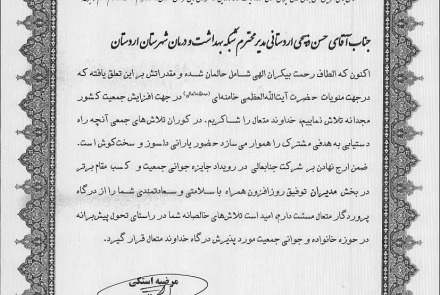 جناب آقای حسن ذبیحی اردستانی مدیر محترم شبکه بهداشت و درمان شهرستان اردستان
اکنون که الطاف رحمت بیکران الهی شامل حالمان شده و مقدراتش بر این تعلق یافته که
در جهت منویات حضرت آیت‌الله‌العظمی خامنه‌ای در جهت افزایش جمعیت کشور
مجدانه تلاش نماییم، خداوند متعال را شاکریم. در کوران تلاش‌های جمعی آنچه راه
دستیابی به هدفی مشترک را هموار می سازد حضور یارانی دلسوز و سخت‌کوش است.
ضمن ارج نهادن بر شرکت جنابعالی در رویداد جایزه جوانی جمعیت و کسب مقام برتر
در بخش مدیران توفیق روزافزون همراه با سلامتی و سعادتمندی شما را از درگاه
پروردگار متعال مسئلت دارم. امید است تلاش‌های خالصانه شما در راستای تحول پیش‌برانه
در حوزه خانواده و جوانی جمعیت مورد پذیرش درگاه خداوند متعال قرار گیرد.
مرضیه